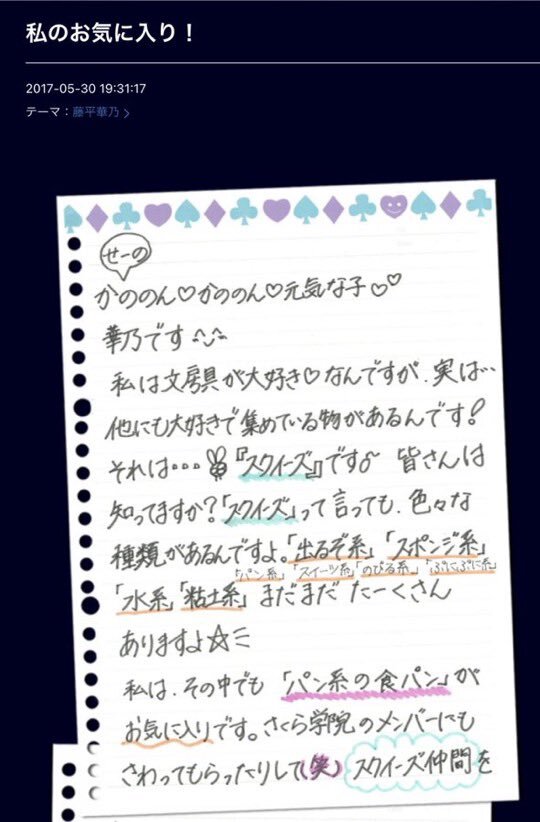 私のお気に入り！
2017-05-30 19:31:17
テーマ：藤平華乃 >
せーの
かののん♡かののん♡元気な子♡♡
華乃です^^
私は文房具が大好き♡なんですが、実は…
他にも大好きで集めている物があるんです!
それは…『スクイーズ』です♂ 皆さんは
知ってますか?「スクイーズ」って言っても、色々な
種類があるんですよ。「出るぞ系」「スポンジ系」
「パン系」「スイーツ系」「のびる系」「ぷにぷに系」
「水系」「粘土系」まだまだ たーくさん
ありますよ☆彡
私は、その中でも「パン系の食パン」が
お気に入りです。さくら学院のメンバーにも
さわってもらったりして(笑) スクイーズ仲間を